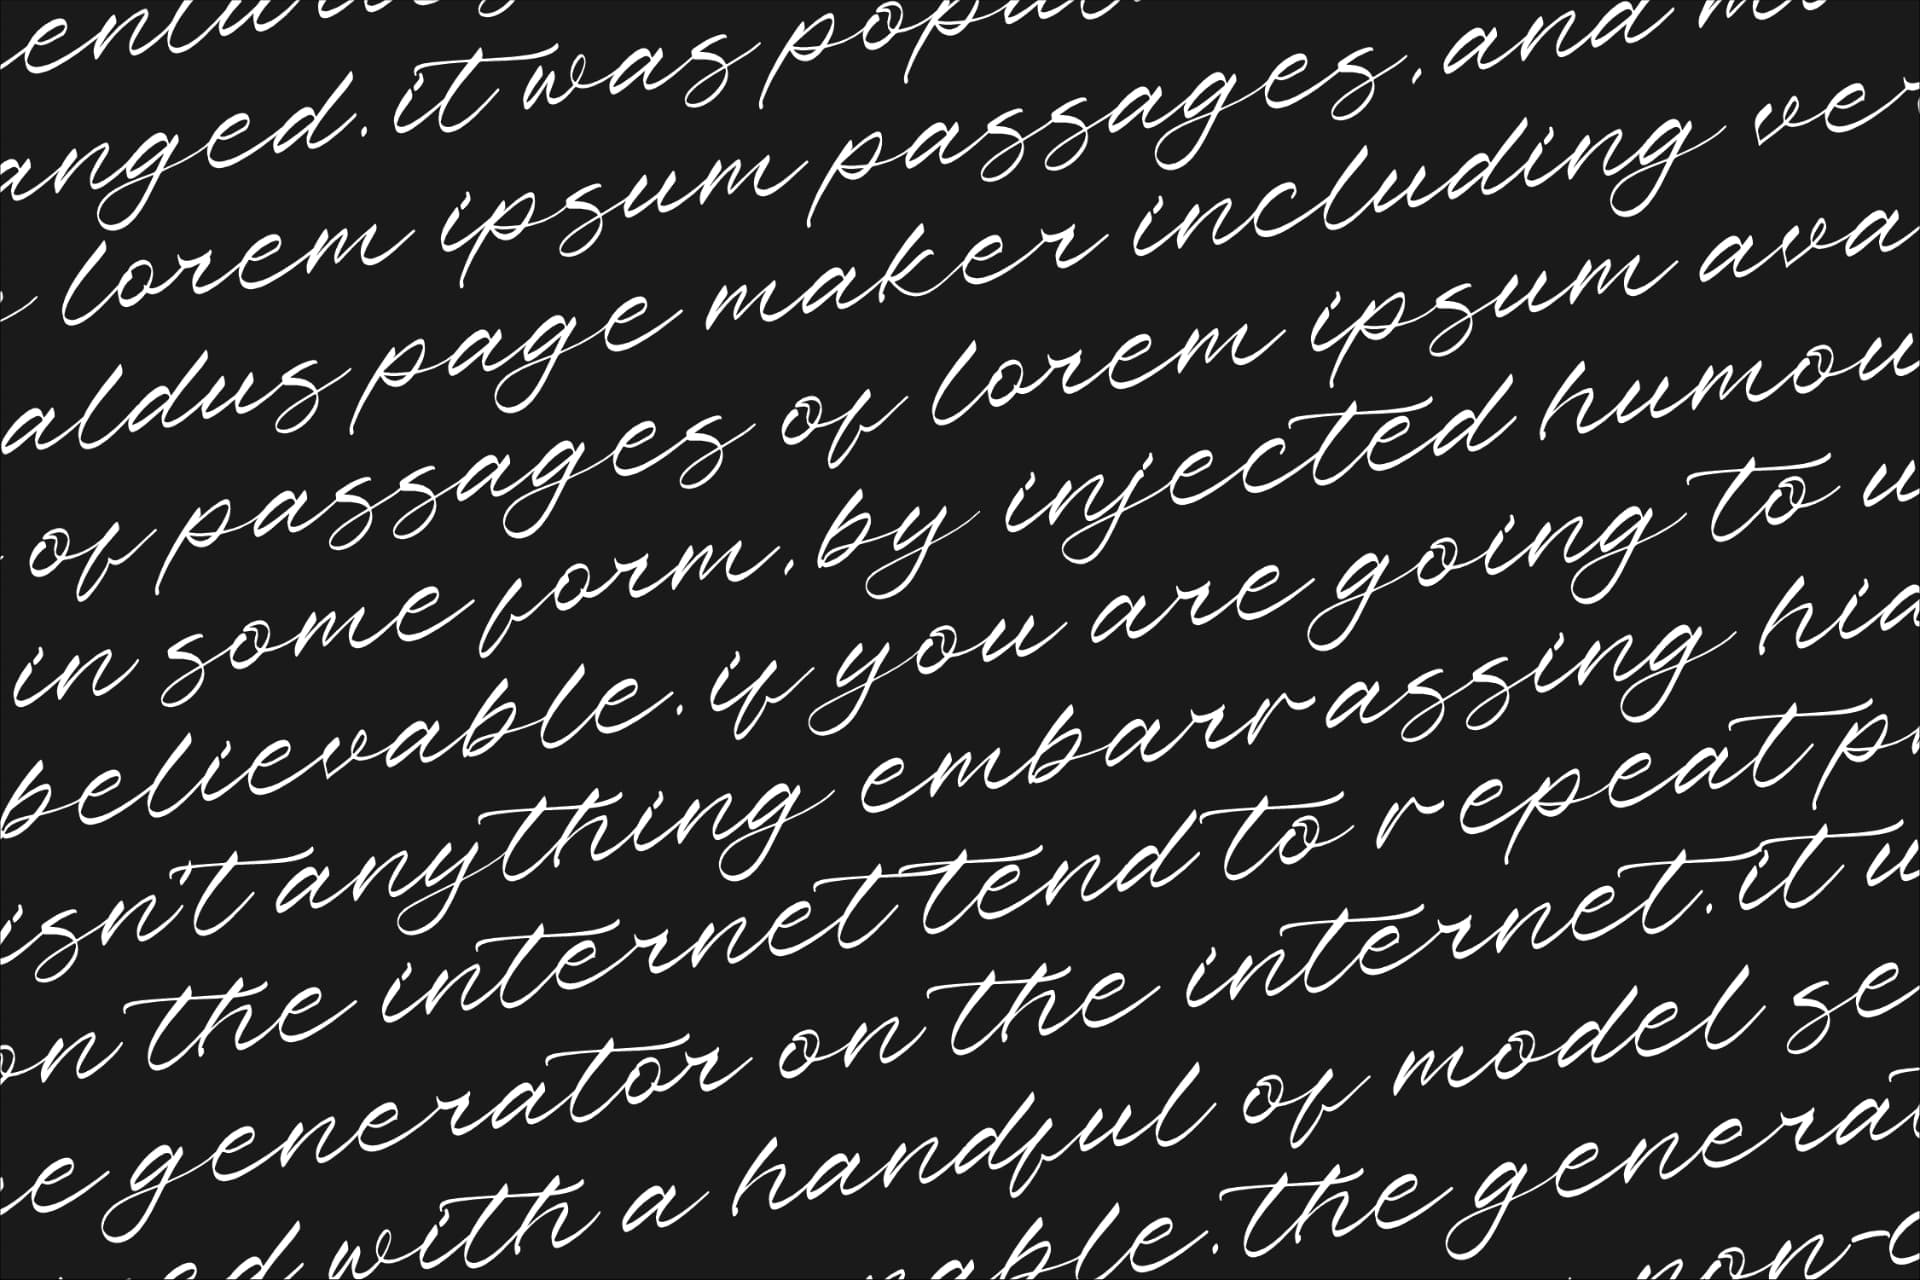 anged. it was popul
lorem ipsum passages, and
aldus page maker including ver
of passages of lorem ipsum ava
in some form, by injected humou
believable. if you are going to u
isn't anything embarrassing hid
on the internet tend to repeat pr
e generator on the internet. it u
with a handful of model se
able. the generat
non-